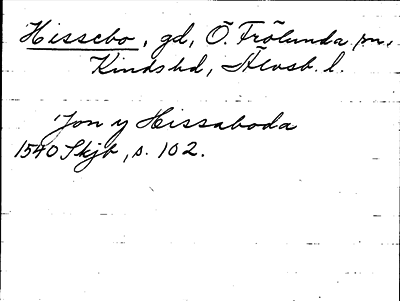 Hissebo, gd, Ö. Frölunda sn,
Kinds hd, Älvsb. l.
Jon y Hissaboda
1540 Skjb, s. 102.